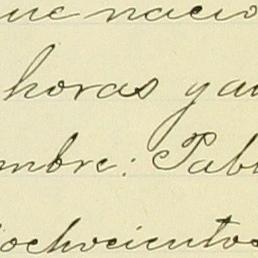 que nacio
horas y a
mbre: Pabl
iochocientos